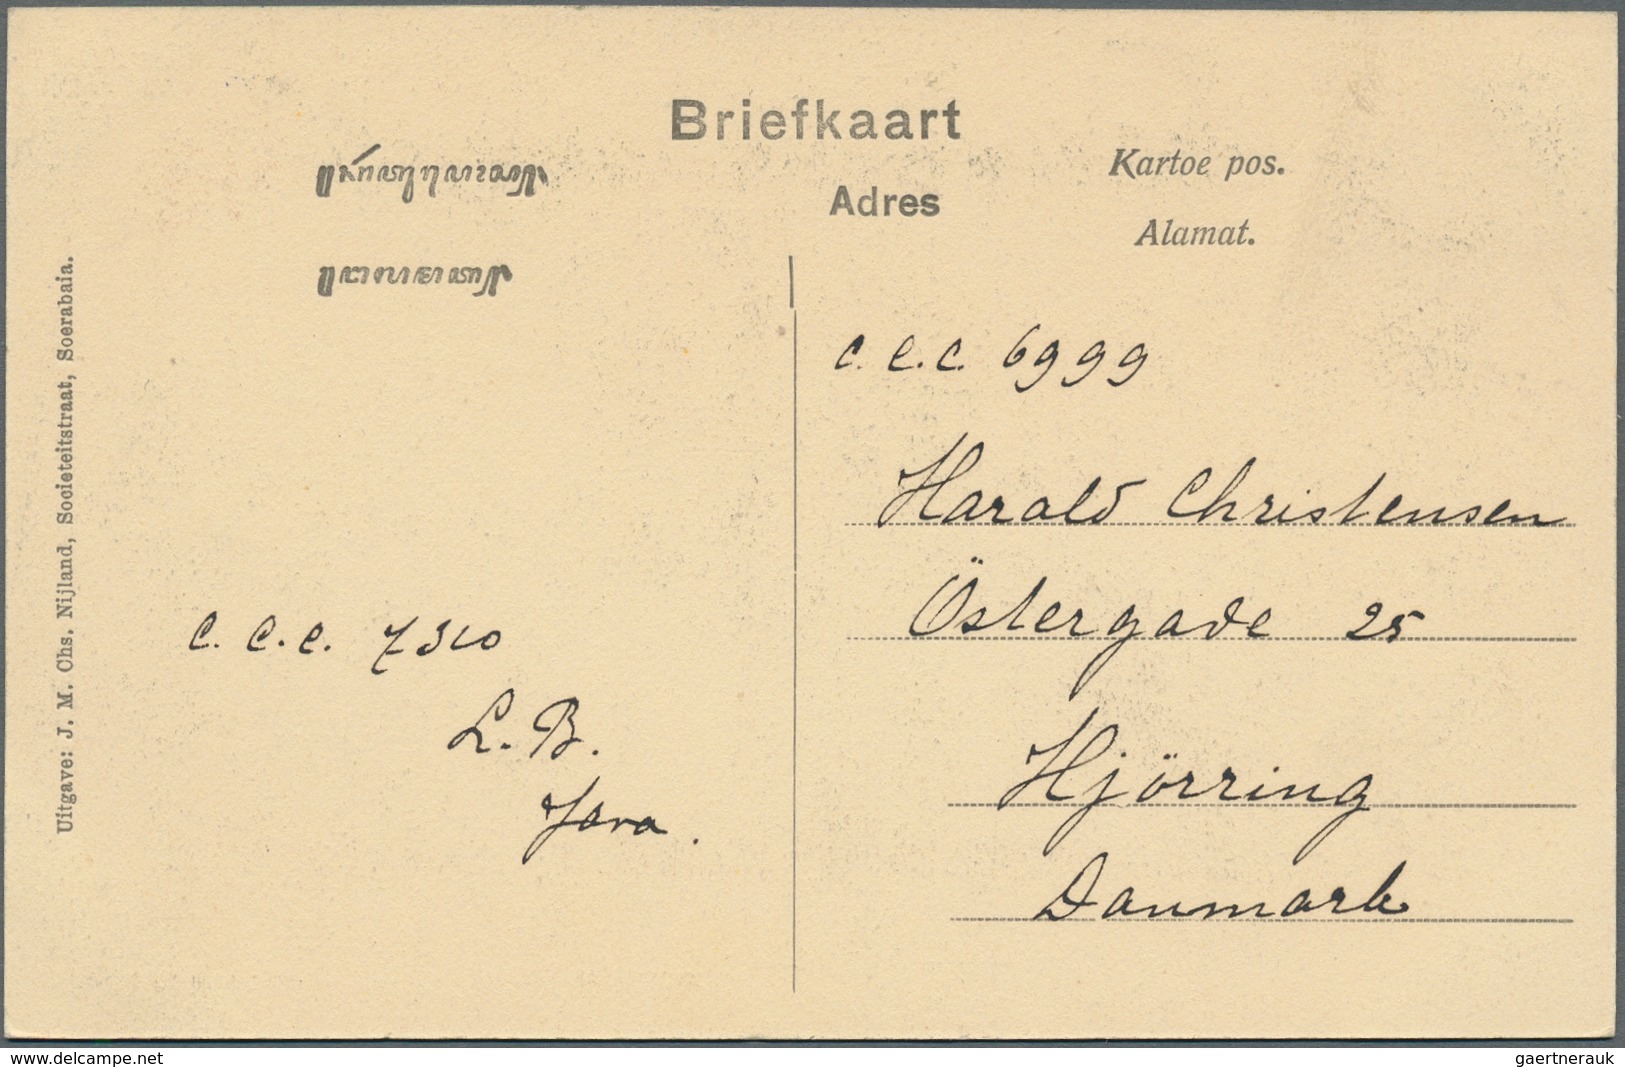 Briefkaart
Adres
Kartoe pos.
Alamat.
Uitgave: J. M. Chs. Nijland, Societeitstraat, Soerabaia.
C. C. C. 6999
Harald Christensen
Östergade 25
Hjörring
Danmark
C. C. C. 7310
L. B.
Java.
www.delcampe.net
gaertnerauk